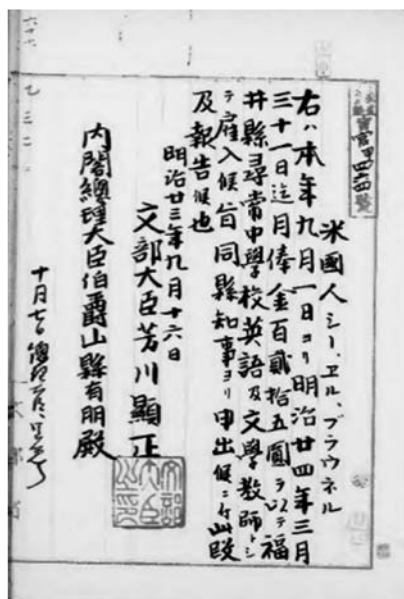 米國人 シー、ヱル、ブラウネル
右ハ本年九月一日ヨリ明治廿四年三月
三十一日迄月俸金百貳拾五圓ヲ以テ福
井縣尋常中學校英語及文學教師トシ
テ雇入候旨同縣知事ヨリ申出候ニ付此段
及報告候也
明治廿三年九月十六日
文部大臣芳川顯正
文部大臣之印
內閣總理大臣伯爵山縣有朋殿